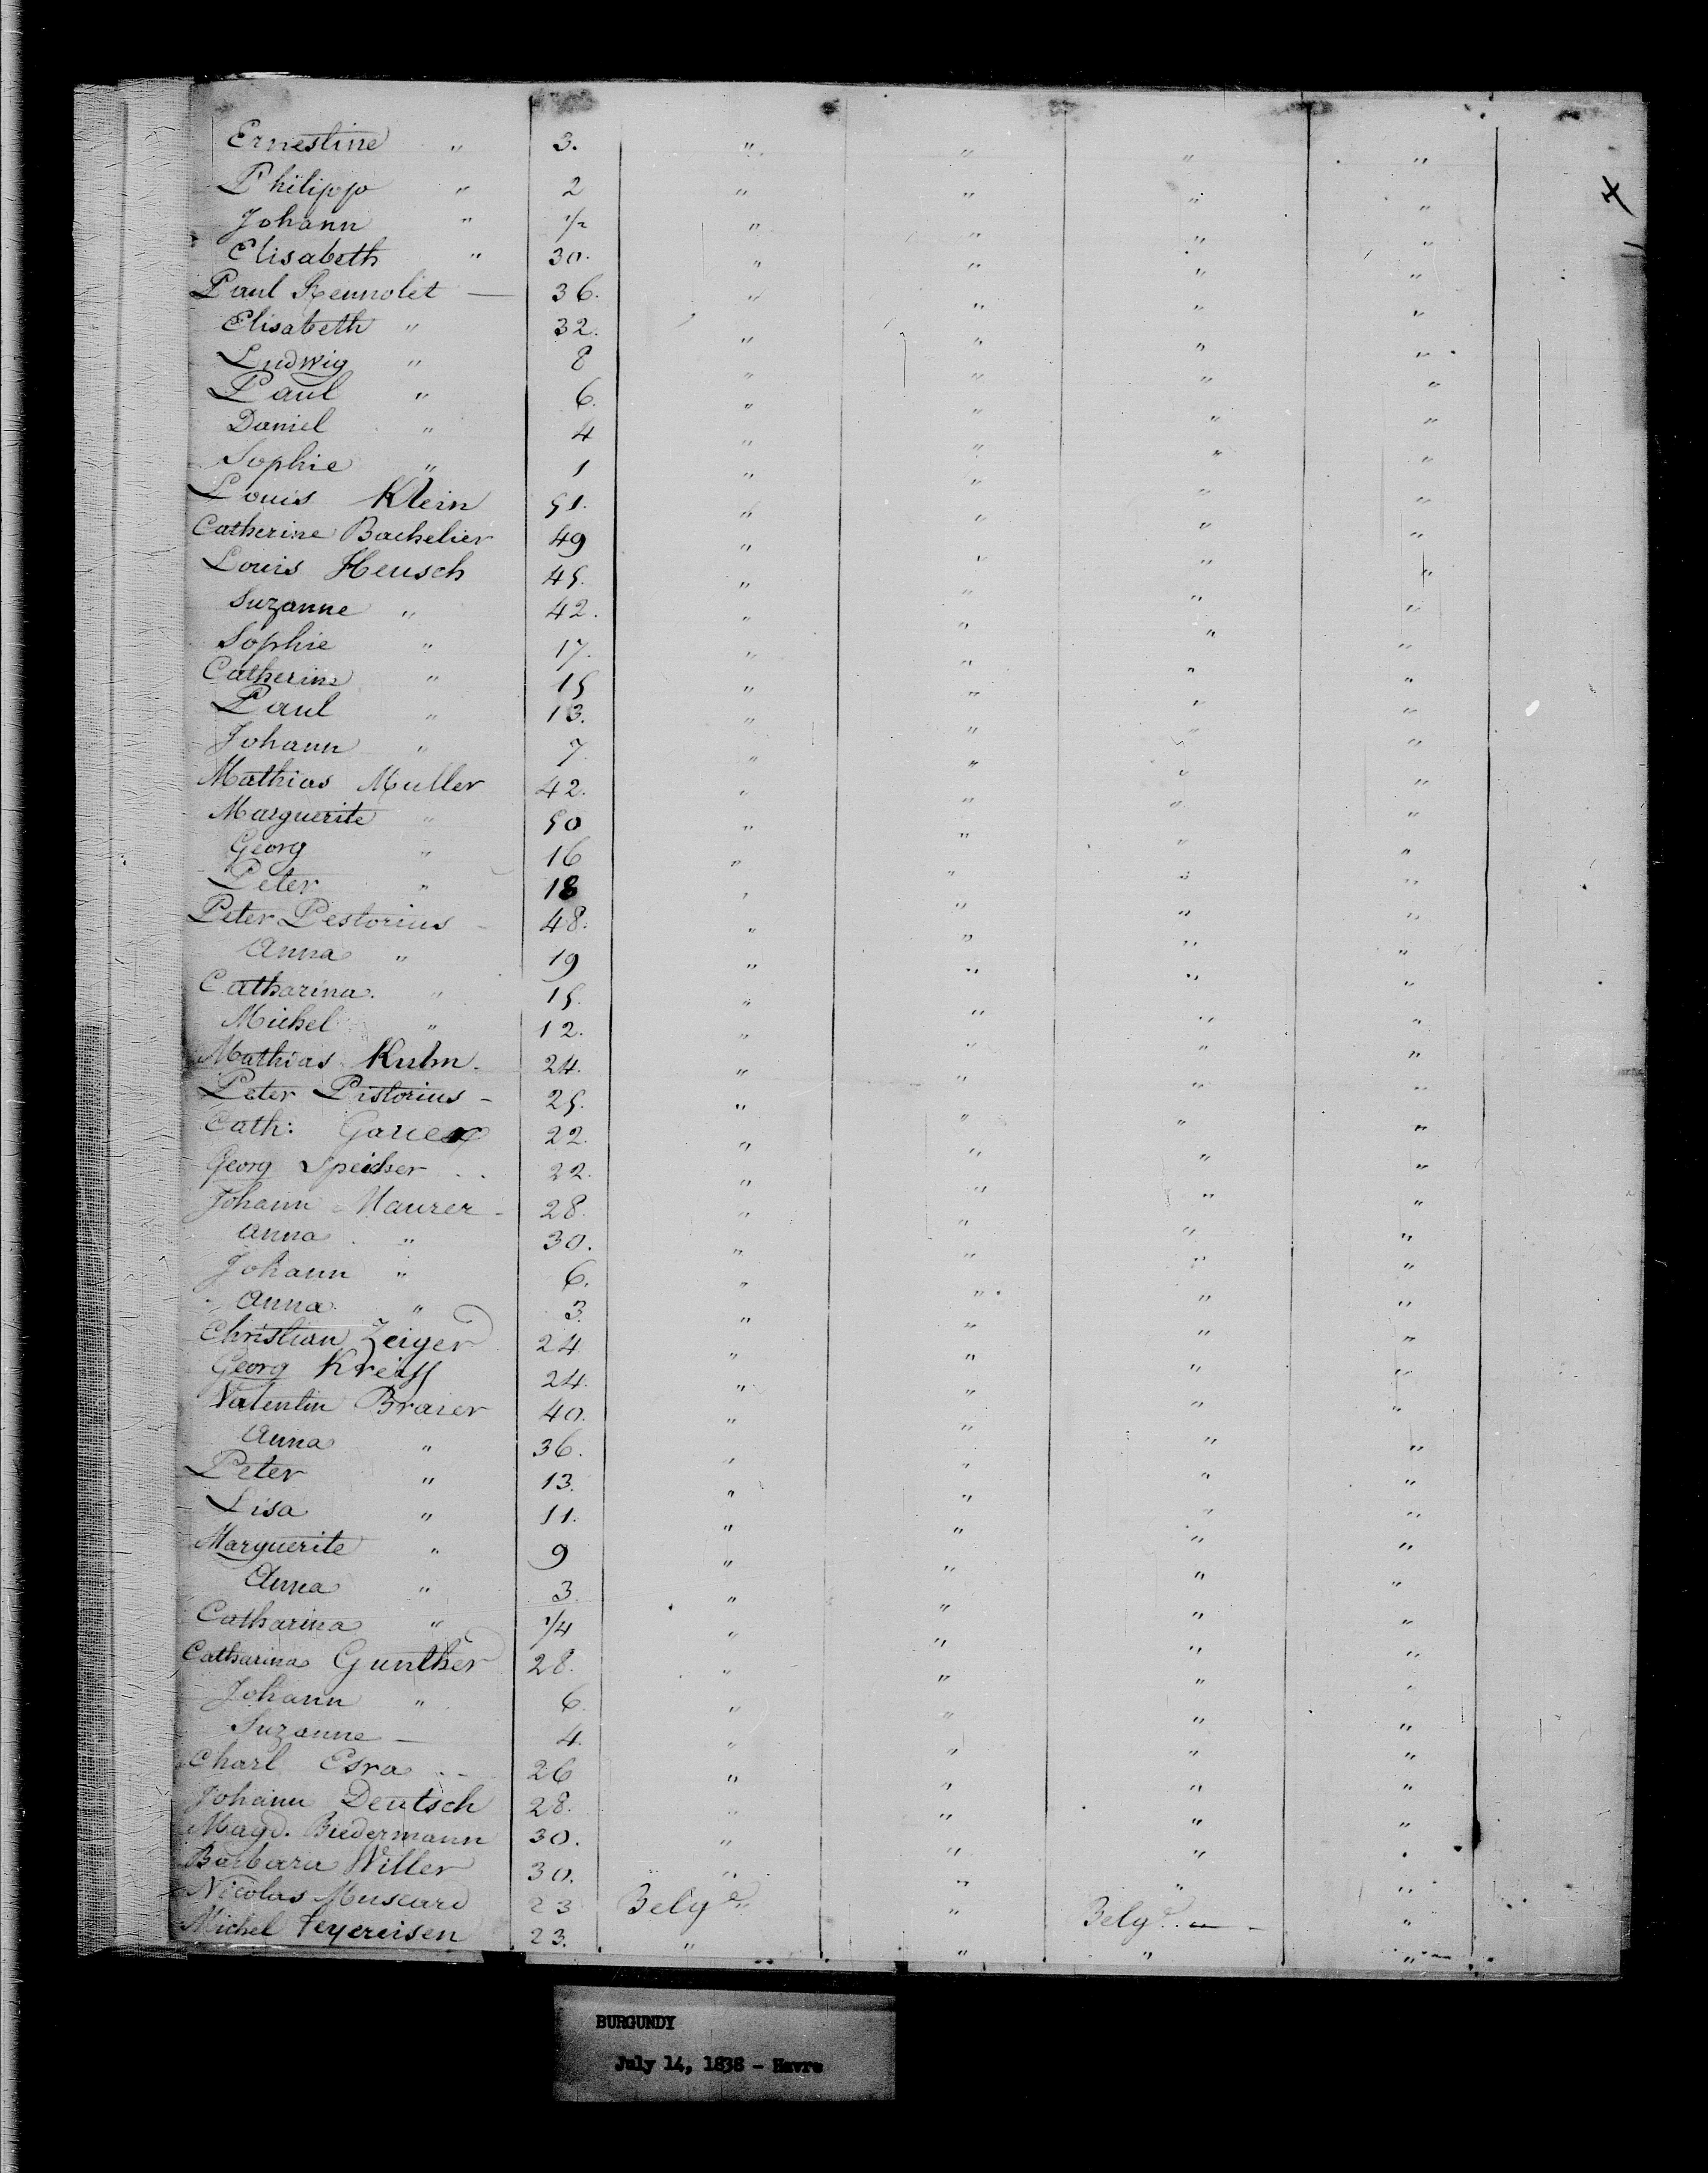 Ernestine " 3. " " " "
Philipp " 2 " " " "
Johann " 1/2 " " " "
Elisabeth " 30. " " " "
Paul — 36. " " " "
Elisabeth " 32. " " " "
Ludwig " 8 " " " "
Paul " 6. " " " "
Daniel " 4 " " " "
Sophie " 1 " " " "
Louis Klein 51. " " " "
Catherine Bachelier 49 " " " "
Louis Heusch 45. " " " "
Suzanne " 42. " " " "
Sophie " 17. " " " "
Catherine " 15 " " " "
Paul " 13. " " " "
Johann " 7. " " " "
Mathias Muller 42. " " " "
Marguerite " 50 " " " "
Georg " 16 " " " "
Peter " 18 " " " "
Peter Pestorius - 48. " " " "
Anna " 19 " " " "
Catharina. " 15. " " " "
Michel " 12. " " " "
Mathias Kuhn. 24. " " " "
Peter Pistorius - 25. " " " "
Cath: 22. " " " "
Georg Speicher 22. " " " "
Johann Maurer - 28. " " " "
Anna " 30. " " " "
Johann " 6. " " " "
Anna " 3. " " " "
Christian Zeiger 24 " " " "
Georg Kreiss 24. " " " "
Valentin Braier 40. " " " "
Anna " 36. " " " "
Peter " 13. " " " "
Lisa " 11. " " " "
Marguerite " 9 " " " "
Anna " 3. " " " "
Catharina " 1/4 " " " "
Catharina Gunther 28. " " " "
Johann " 6. " " " "
Suzanne — 4. " " " "
Charl Esra 26 " " " "
Johann Deutsch 28. " " " "
Magd. Biedermann 30. " " " "
Barbara Willer 30. " " " "
Nicolas Muscard 23 Belge " Belge "
Michel Feyereisen 23. " " " "
BURGUNDY
July 14, 1838 - Havre